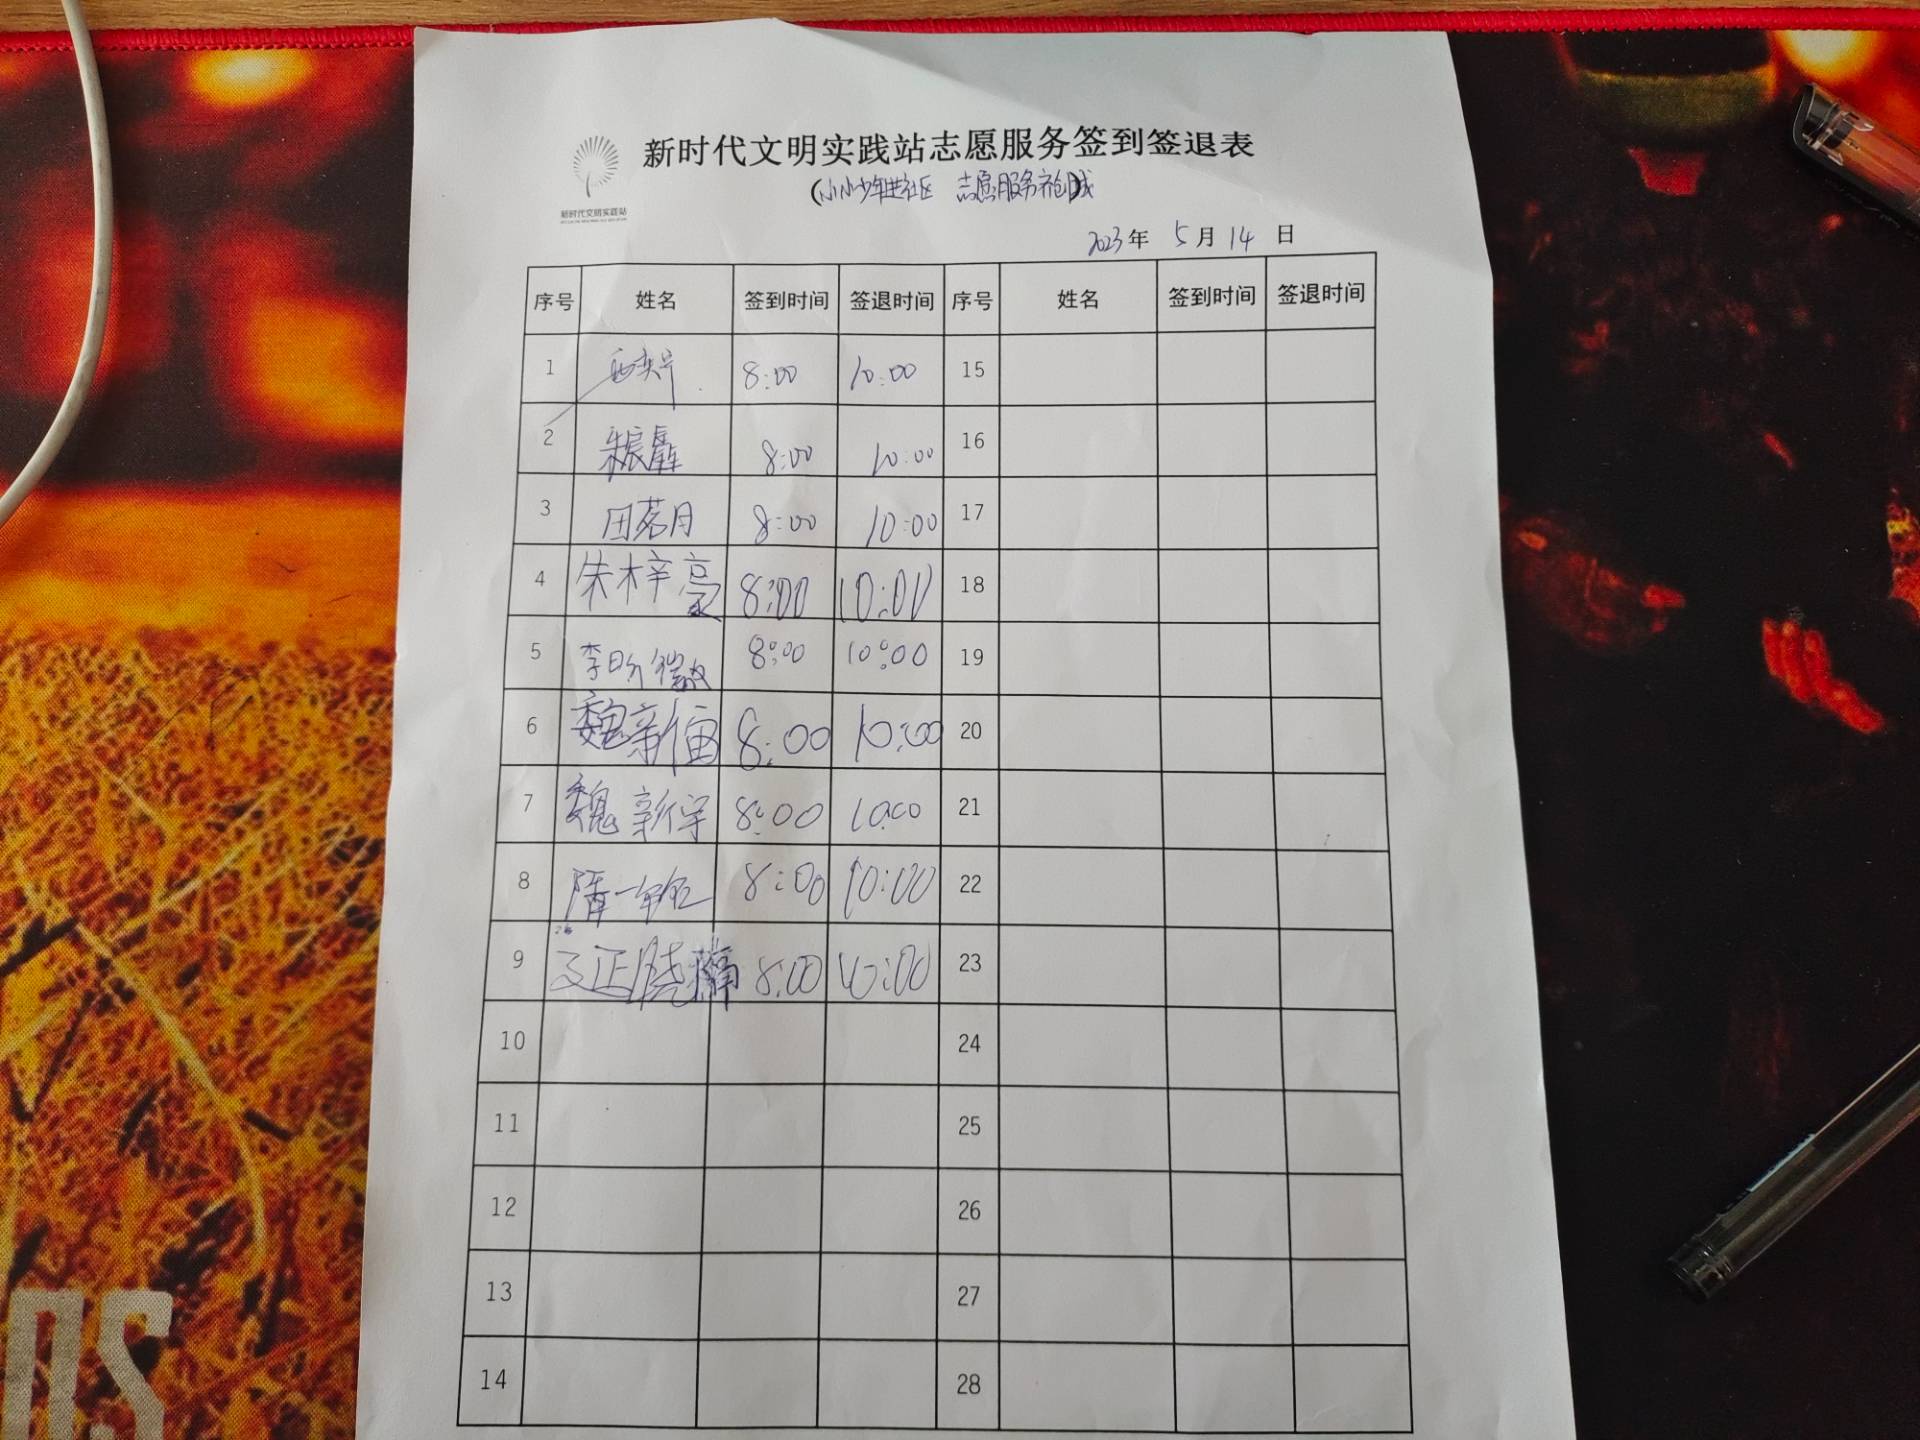 新时代文明实践站志愿服务签到签退表
(小小少年进社区 志愿服务
新时代文明实践站
2023年 5月14日
序号 姓名 签到时间 签退时间 序号 姓名 签到时间 签退时间
1 8:00 10:00 15
2 8:00 10:00 16
3 田若月 8:00 10:00 17
4 朱梓豪 8:00 10:00 18
5 李 8:00 10:00 19
6 魏新宙 8:00 10:00 20
7 魏新宇 8:00 10:00 21
8 隋一 8:00 10:00 22
9 8:00 10:00 23
10 24
11 25
12 26
13 27
14 28
OS